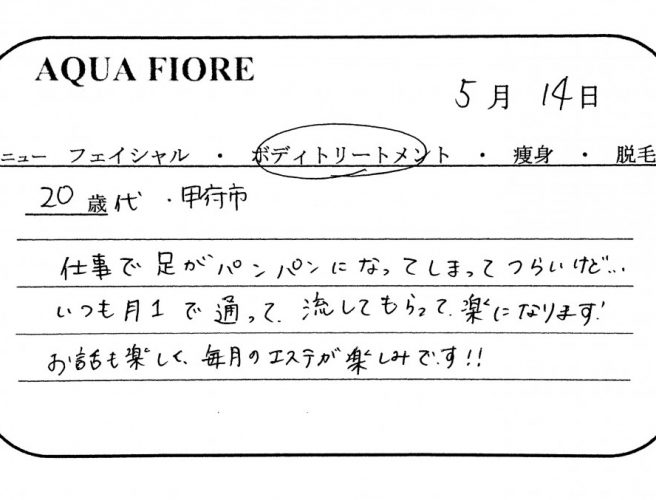 AQUA FIORE
5月 14日
ニュー フェイシャル ・ ボディトリートメント ・ 痩身 ・ 脱毛
20歳代 ・甲府市
仕事で足がパンパンになってしまってつらいけど…
いつも月1で通って、流してもらって、楽になります!
お話も楽しく、毎月のエステが楽しみです!!